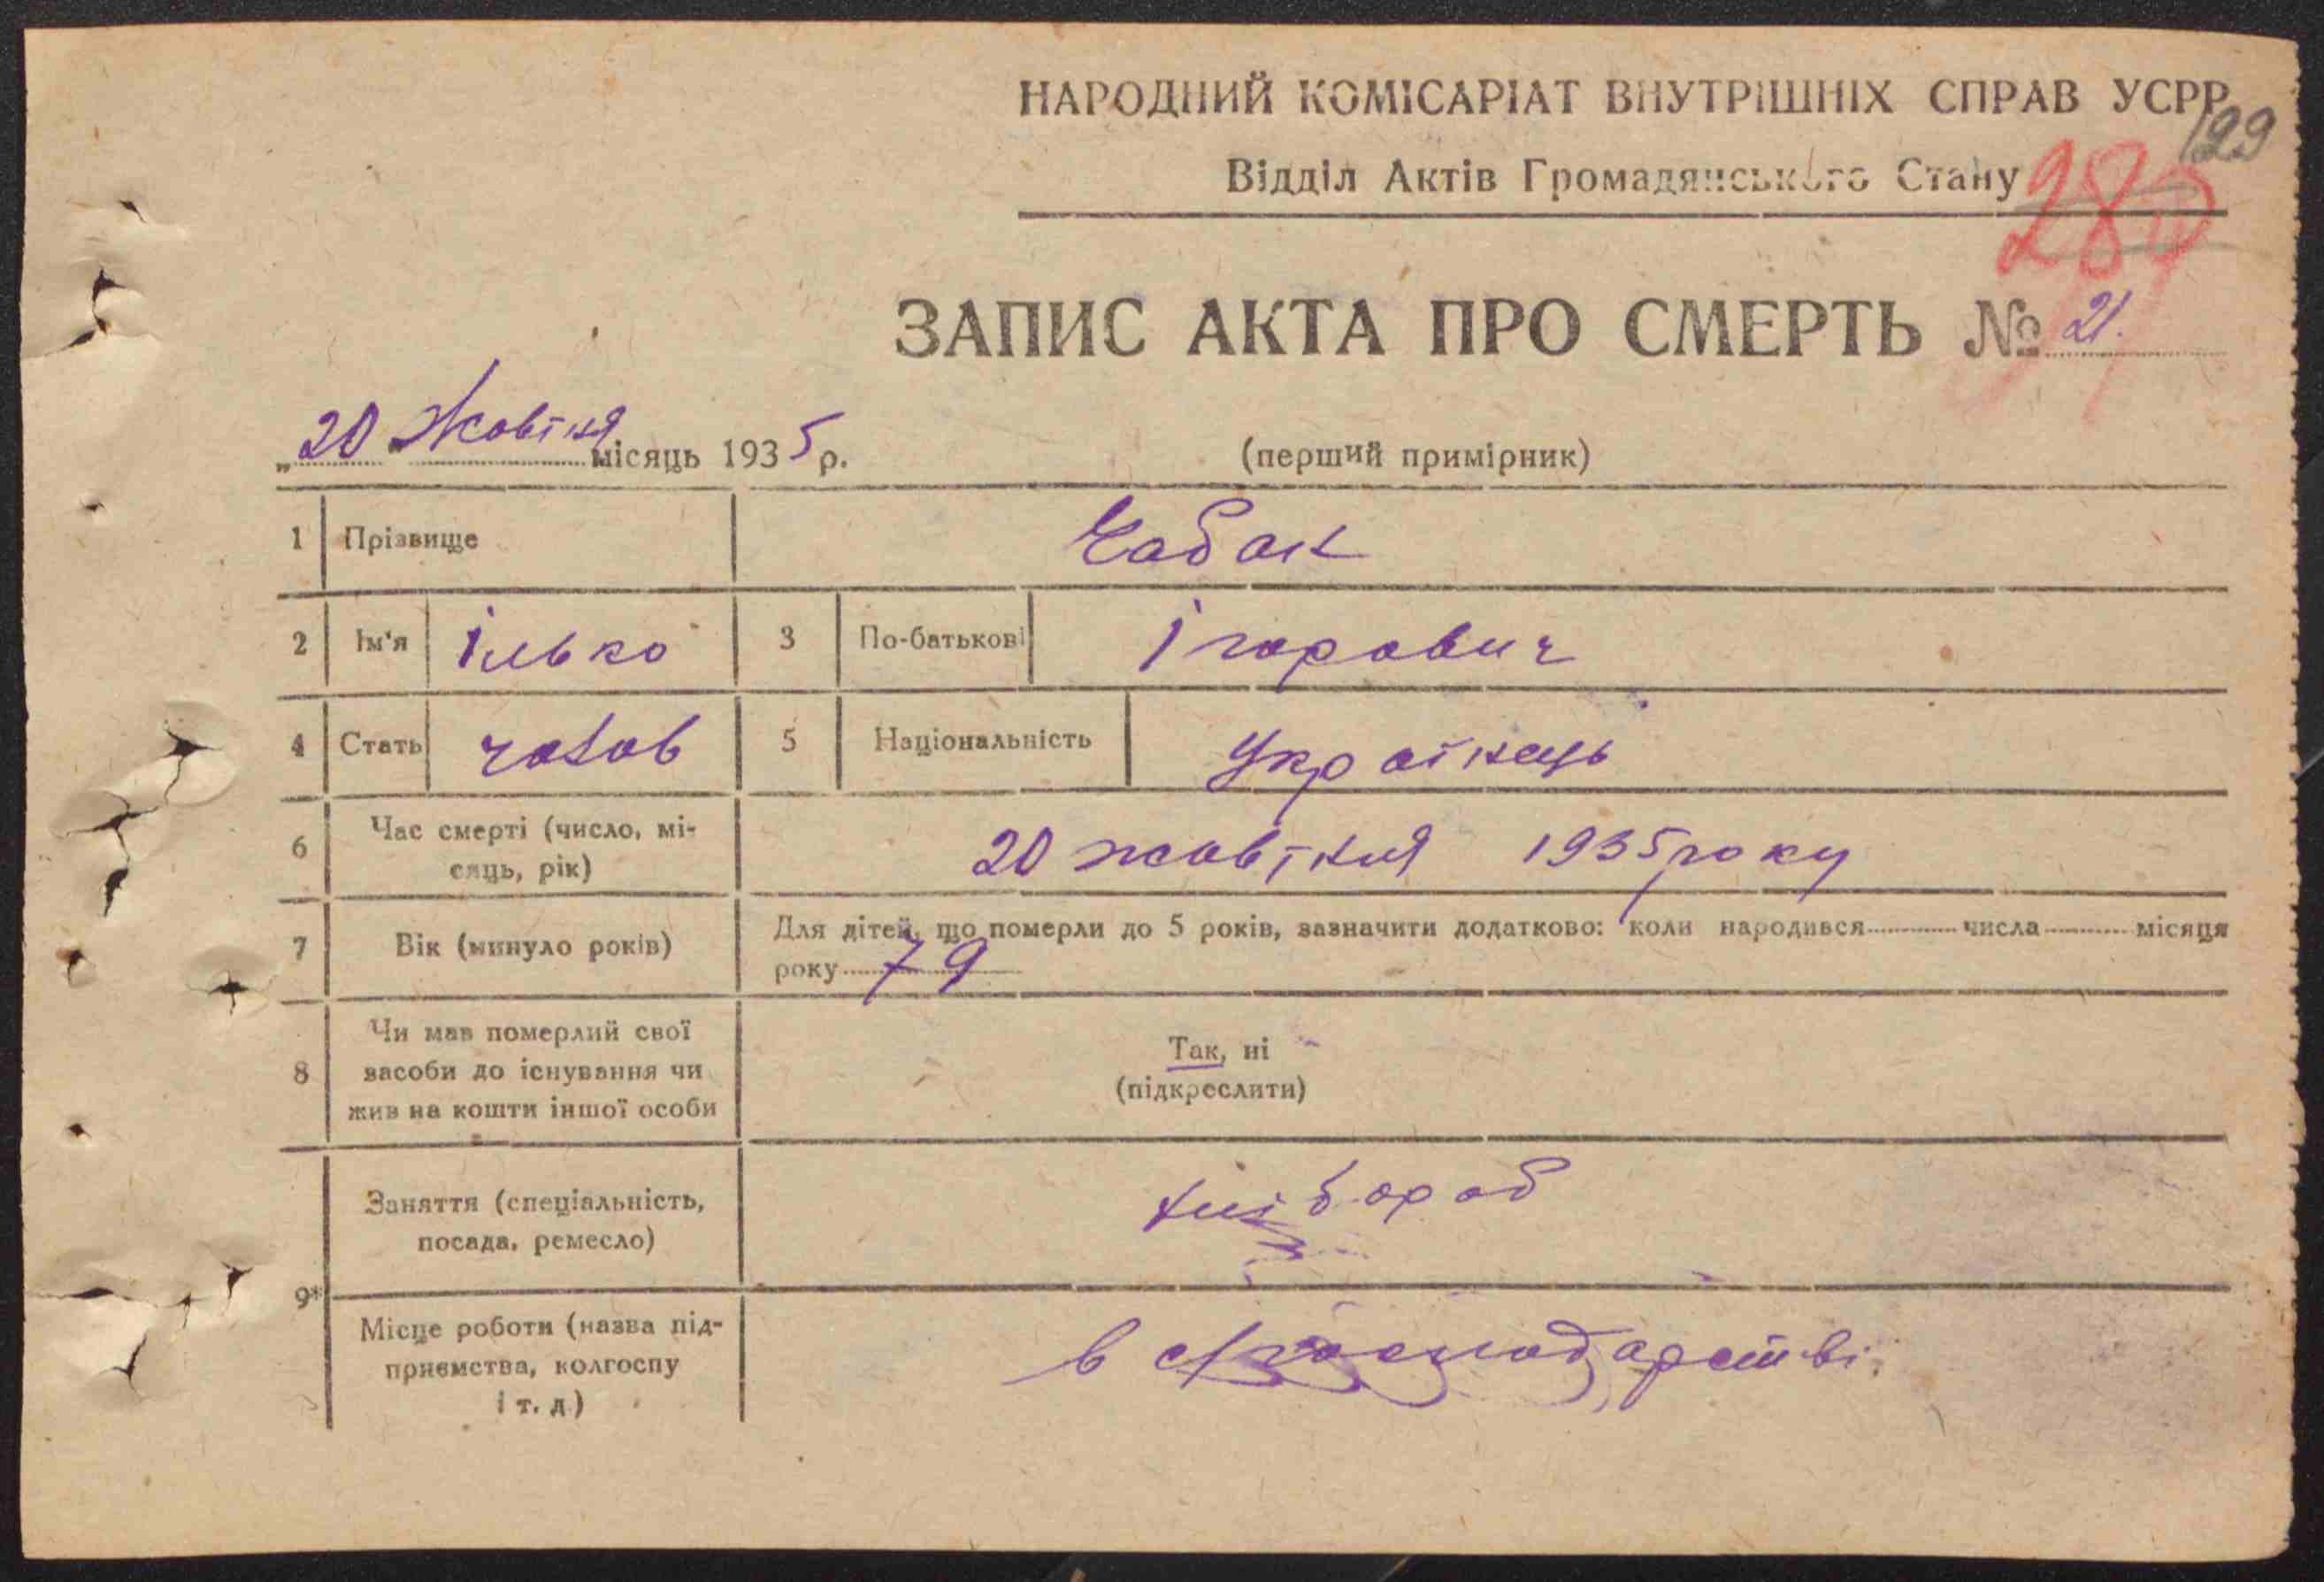 НАРОДНИЙ КОМІСАРІАТ ВНУТРІШНІХ СПРАВ УСРР
199
Відділ Актів Громадянського Стану
280
ЗАПИС АКТА ПРО СМЕРТЬ № 21.
„20" Жовтня місяць 1935 р.
(перший примірник)
1 Прізвище Чабак
2 Ім'я Ілько 3 По-батькові Ігорович
4 Стать чолов 5 Національність Українець
6 Час смерті (число, мі-
сяць, рік) 20 жовтня 1935 року
7 Вік (минуло років) Для дітей, що померли до 5 років, зазначити додатково: коли народився числа місяця
року 79
8 Чи мав померлий свої
засоби до існування чи
жив на кошти іншої особи
Так, ні
(підкреслити)
9* Заняття (спеціальність,
посада, ремесло) хлібороб
Місце роботи (назва під-
приємства, колгоспу
і т. д.)
в с/господарстві